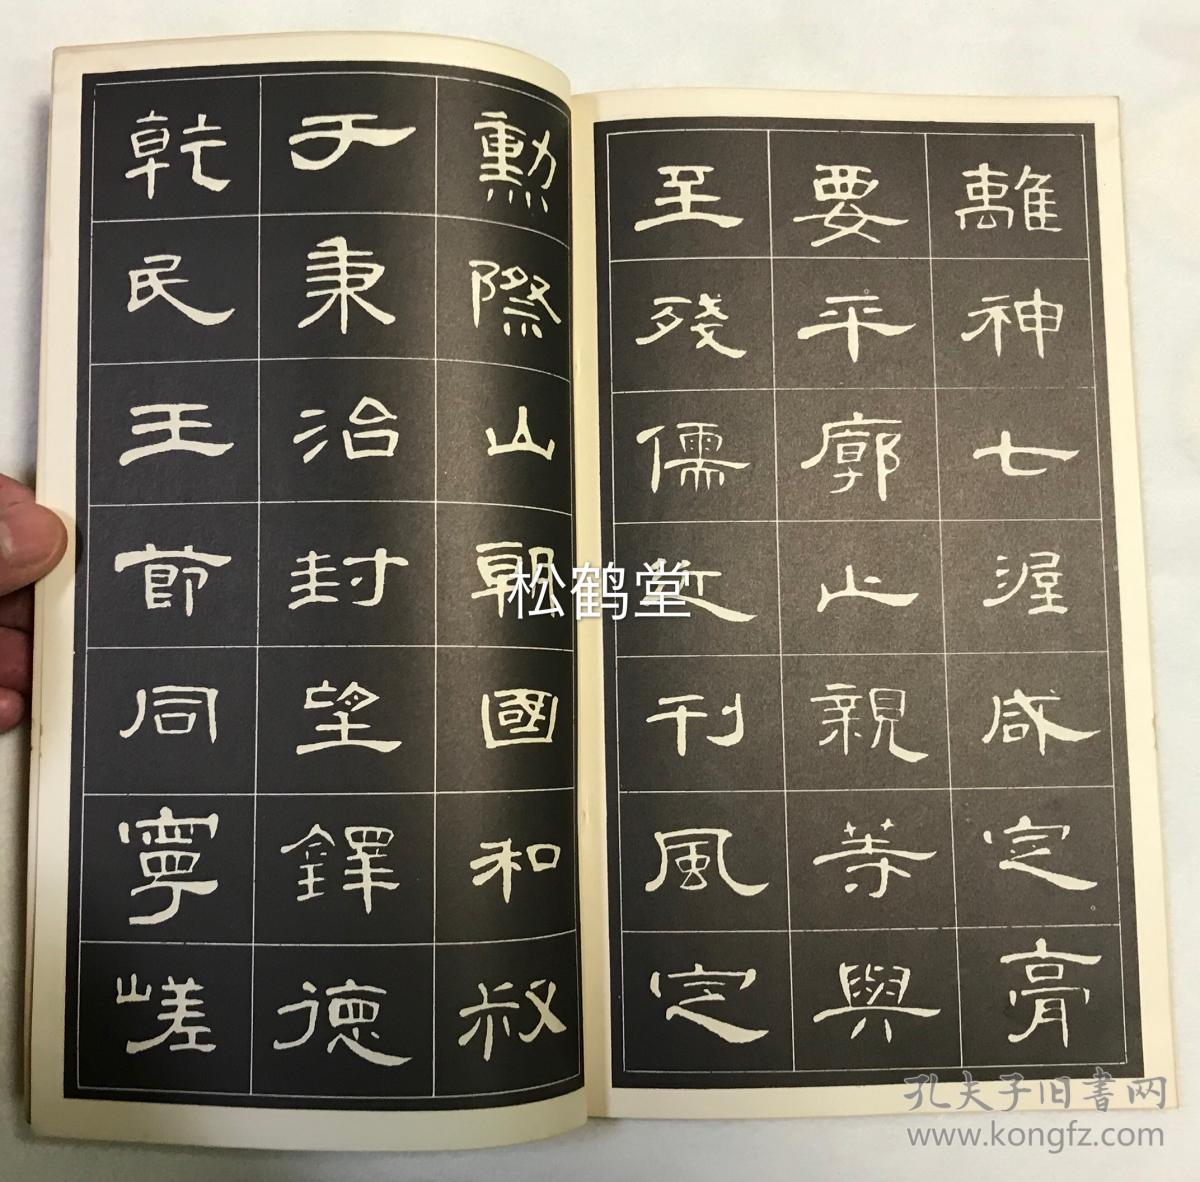 離神七渥咸定膏
要平廓止親等與
至殘儒近刊風定
勳際山朝國和叔
于秉治封望鐸德
乾民王節同寧嵯
松鹤堂
孔夫子旧書网
www.kongfz.com